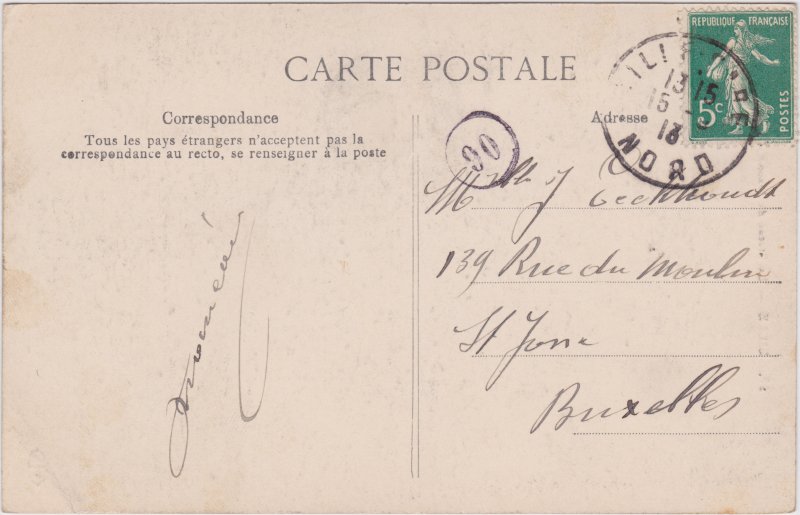 CARTE POSTALE
Correspondance
Tous les pays étrangers n'acceptent pas la
correspondance au recto, se renseigner à la poste
Adresse
REPUBLIQUE FRANÇAISE
5c
POSTES
LILLE
13 15
NORD
90
Mlle J
139 Rue du Moulin
St Josse
Bruxelles